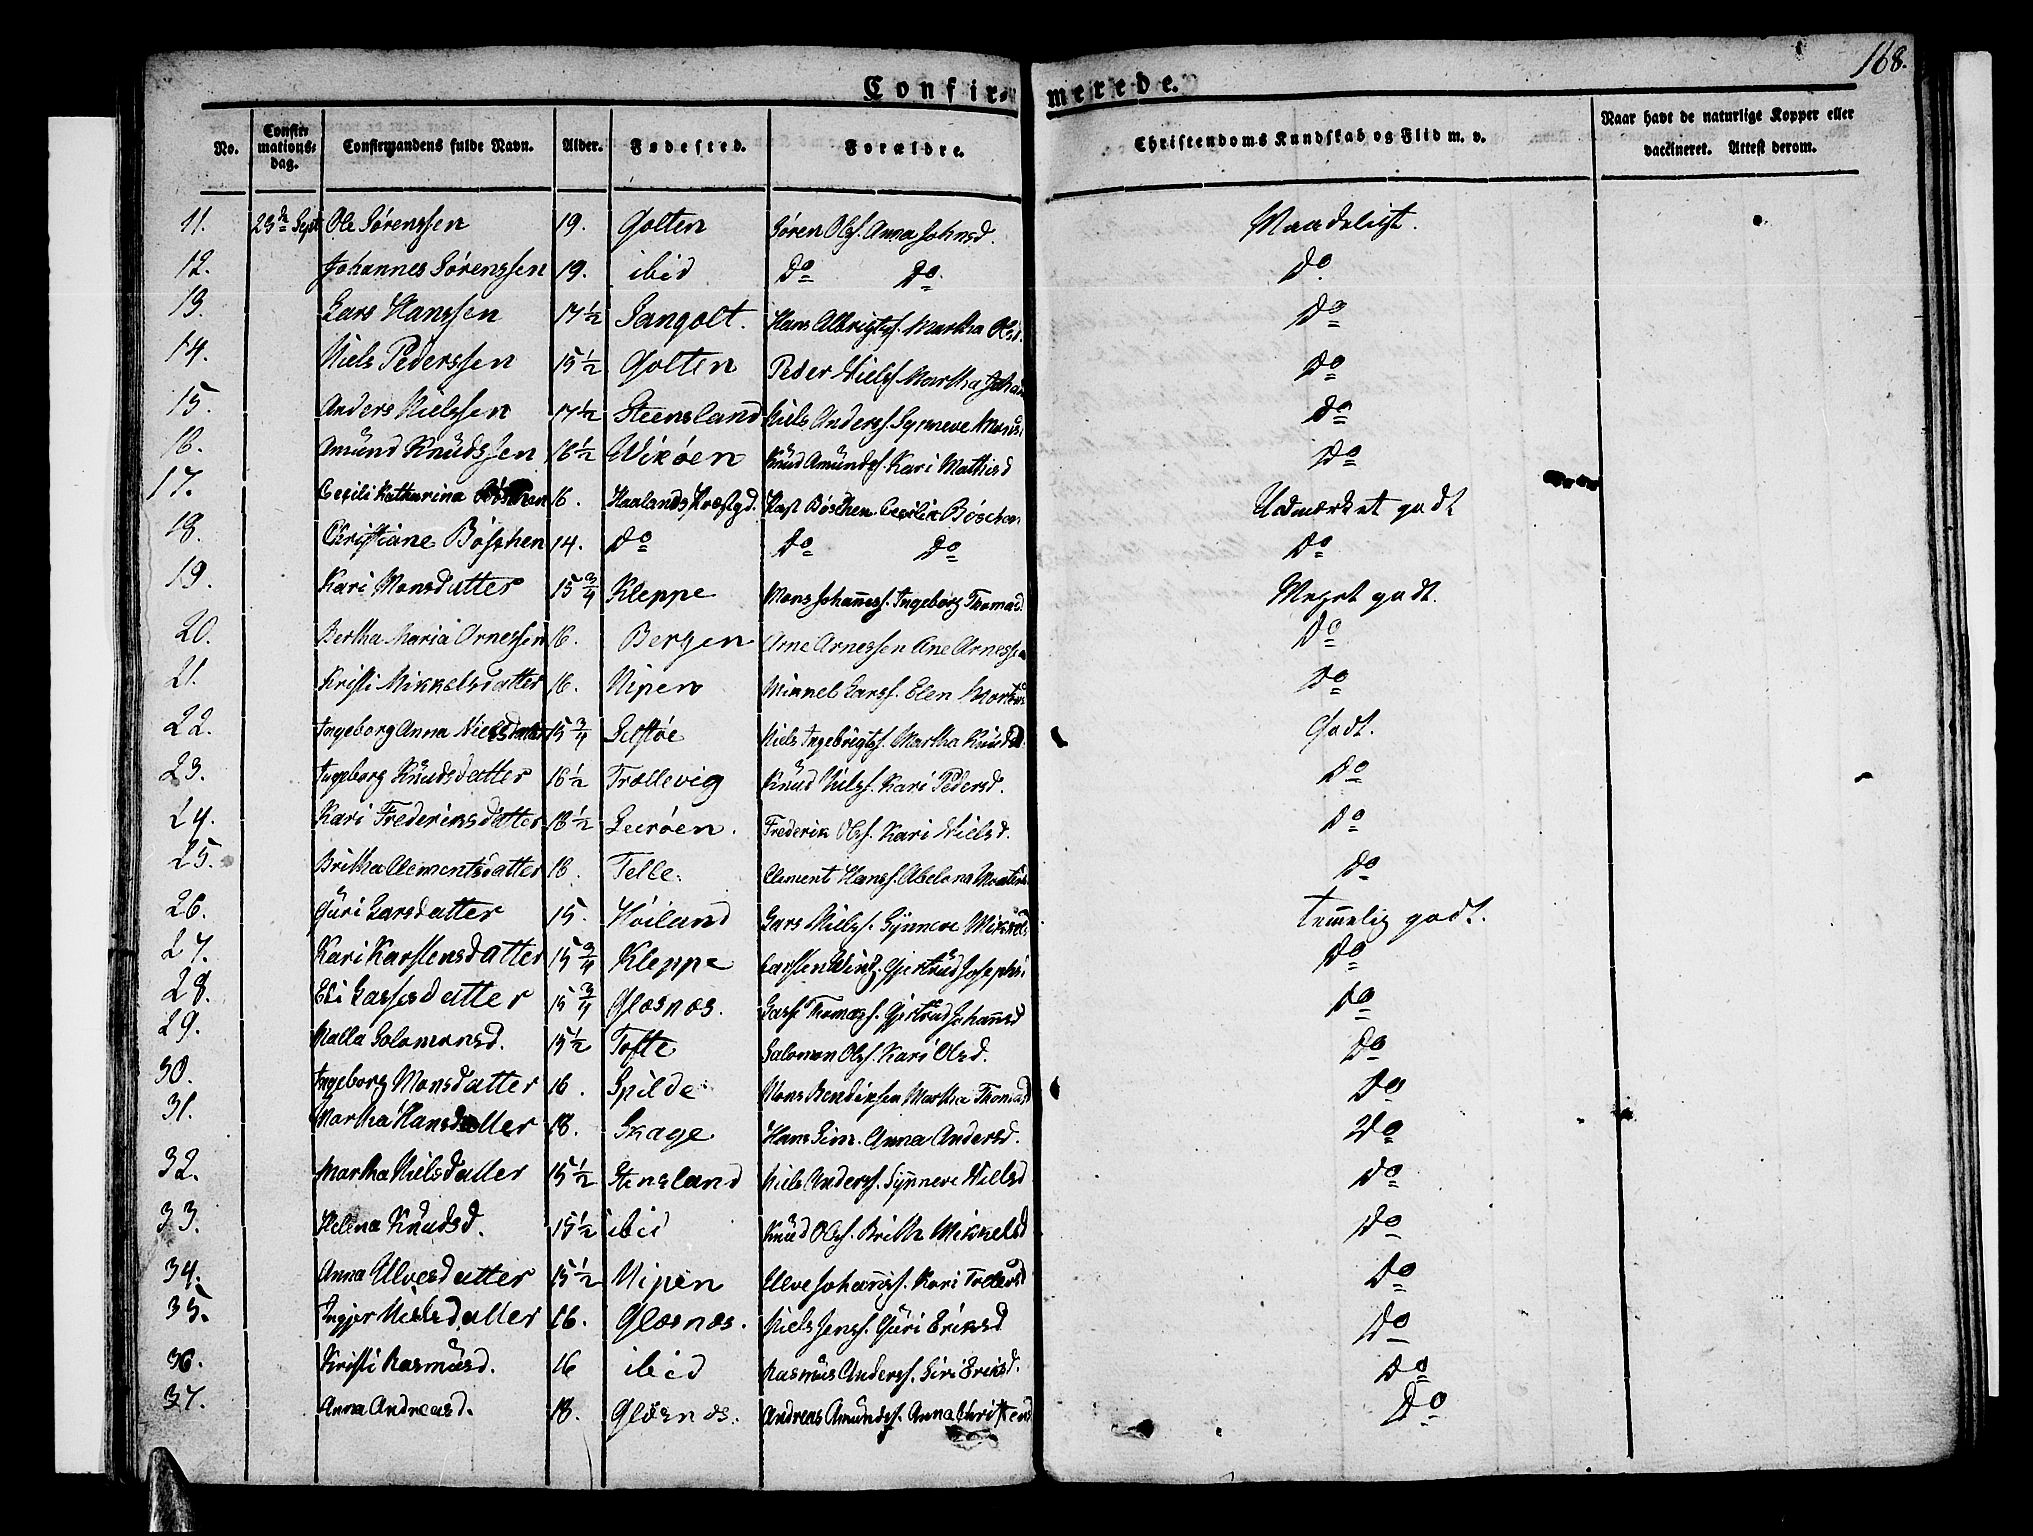 168.
Confirmerede.
No. Confirmationsdag. Confirmandens fulde Navn. Alder. Fødested. Forældre. Christendoms Kundskab og Flid m. v. Naar havt de naturlige Kopper eller vaccineret. Attest derom.
11. 23de Sept Ole Sørenssen 19. Golten Søren Ols. Anna Johnsd. Maadeligt.
12. Johannes Sørenssen 19. ibid Do Do. Do
13. Lars Hanssen 17 1/2 Sangolt. Hans Albrigts. Martha Olsd. Do
14. Niels Pederssen 15 1/2 Golten Peder Niels. Martha Do
15. Anders Nielssen 17 1/2 Steensland Niels Anders. Synneve Do
16. Amund Knüdssen 16 1/2 Wikøen Knüd Amünds. Kari Mathisd Do
17. Cecili Katharina 16. Haalands Præstgd. Bøschen. Cecilia Udmærket godt
18. Christiane Bøschen 14. Do Do Do Do
19. Kari Monsdatter 15 3/4 Kleppe Mons Johañess. Ingeborg Thomasd Meget godt.
20. Bertha Maria Arnessen 16. Bergen Arne Arnessen Ane Arnessen Do
21. Kristi Mikkelsdatter 16. Nipen Mikkel Larss. Elen Do
22. Ingeborg Anna Nielsdatter 15 3/4 Selstøe Niels Ingebrigts. Martha Knüdsd. Godt.
23. Ingeborg Knüdsdatter 16 1/2 Trællevig Knüd Niels. Kari Pedersd. Do
24. Kari Frederiksdatter 18 1/2 Leerøen. Frederik Ols. Kari Nielsd. Do
25. Britha Clementsdatter 18. Telle. Clement Hanss. Abelona Do
26. Güri Larsdatter 15. Høiland Lars Niels. Synneve temelig godt.
27. Kari Karstensdatter 15 3/4 Kleppe Carsten Gjertrud Do
28. Eli Lassesdatter 15 3/4 Glæsnæs. Lasse Thomæs. Gjertrud Johañsd Do
29. Malla Solomonsd. 15 1/2 Tofte Salomon Ols. Kari Olsd. Do
30. Ingeborg Monsdatter 16. Spilde Mons Bendixsen Martha Thomasd Do
31. Martha Hansdatter 18. Skage Hans Anna Andersd. Do
32. Martha Nielsdatter 15 1/2 Stensland Niels Anderss. Synneve Nielsd Do
33. Helena Knudsd. 15 1/2 ibid Knüd Ols. Brith Mikkelsd Do
34. Anna Ulvesdatter 15 1/2 Nipen Ulve Johañs. Kari Do
35. Ingjer Nielsdatter 16. Glæsnæs. Niels Jens. Güri Eriksd Do
36. Kristi Rasmüsd. 16 ibid Rasmüs Anders. Siri Eriksd. Do
37. Anna Andreasd. 18. Glæsnæs. Andreas Amünds. Anna Christensd Do